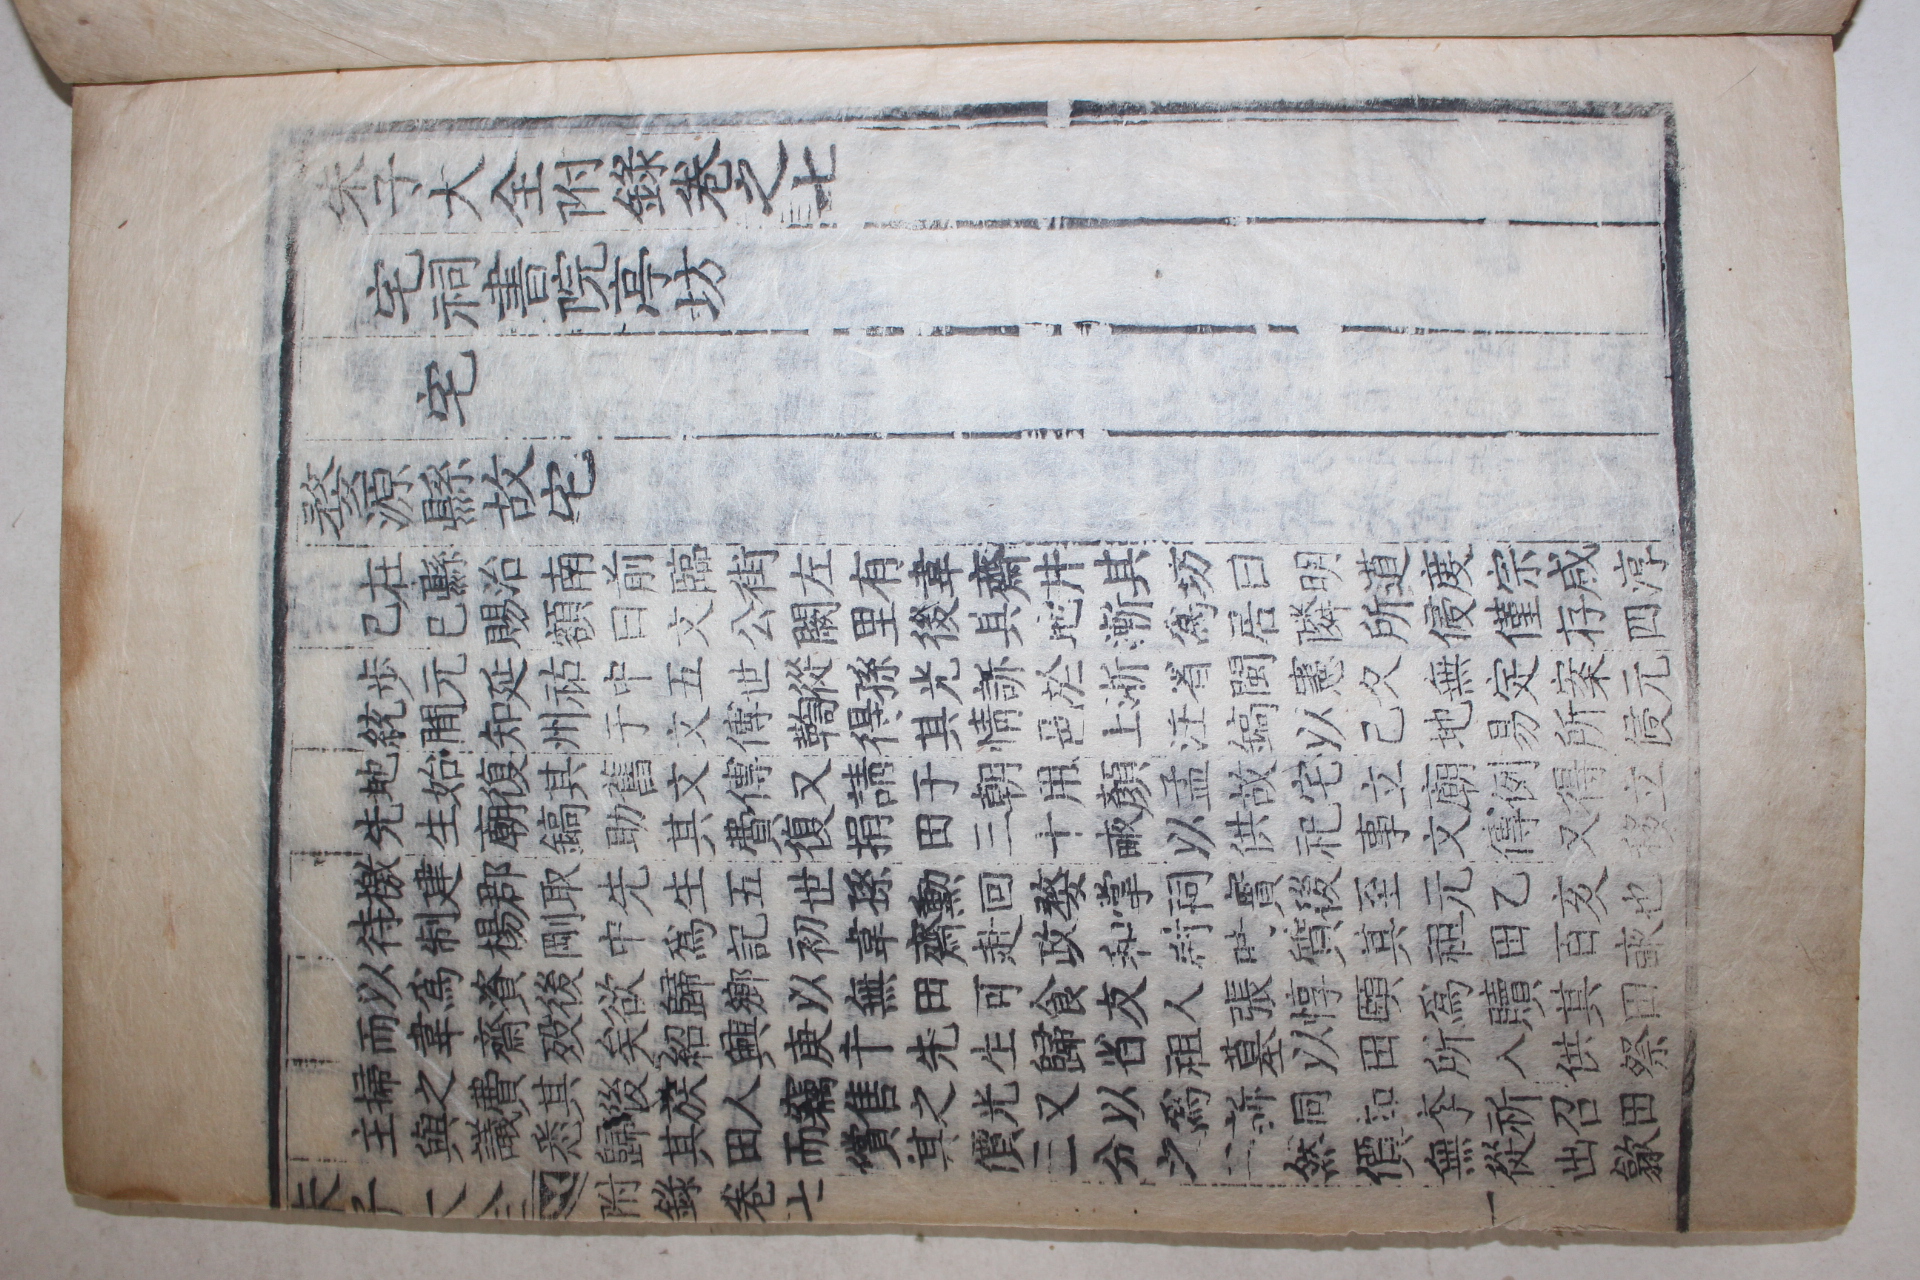 朱子大全附錄卷之七
宅祠書院亭坊
宅
婺源縣故宅
在縣治南前臨街左有韋齋井其坊曰明道度宗咸淳
己巳賜額曰文公闕里後其地漸爲居隣所侵僅存四
步元延祐中五世從孫光訴於浙省閩憲久無定案元
統間知州于文傳鞫得其情邑上汪鎬以己地易所侵
地始復其舊文傳又請于朝用顏孟故宅立廟例得立
先生廟鎬助其費復捐田三十畝以供祀事文傳又移
檄建郡取先生五世孫勳回婺掌祠實後至元乙亥也
待制楊剛中爲記初韋齋赴政和尉時質其祖田百畝
以爲資後欲歸鄉以無田可食友人張惇頤爲贖其田
而韋齋歿矣紹興庚午先生歸省祖墓以田所入供祭
掃之費其後族人竊售之光又以爲訴同知李祈召田
主與議悉歸其田而償其價三分之二然價無從出歙
朱子大全 附錄卷七 一